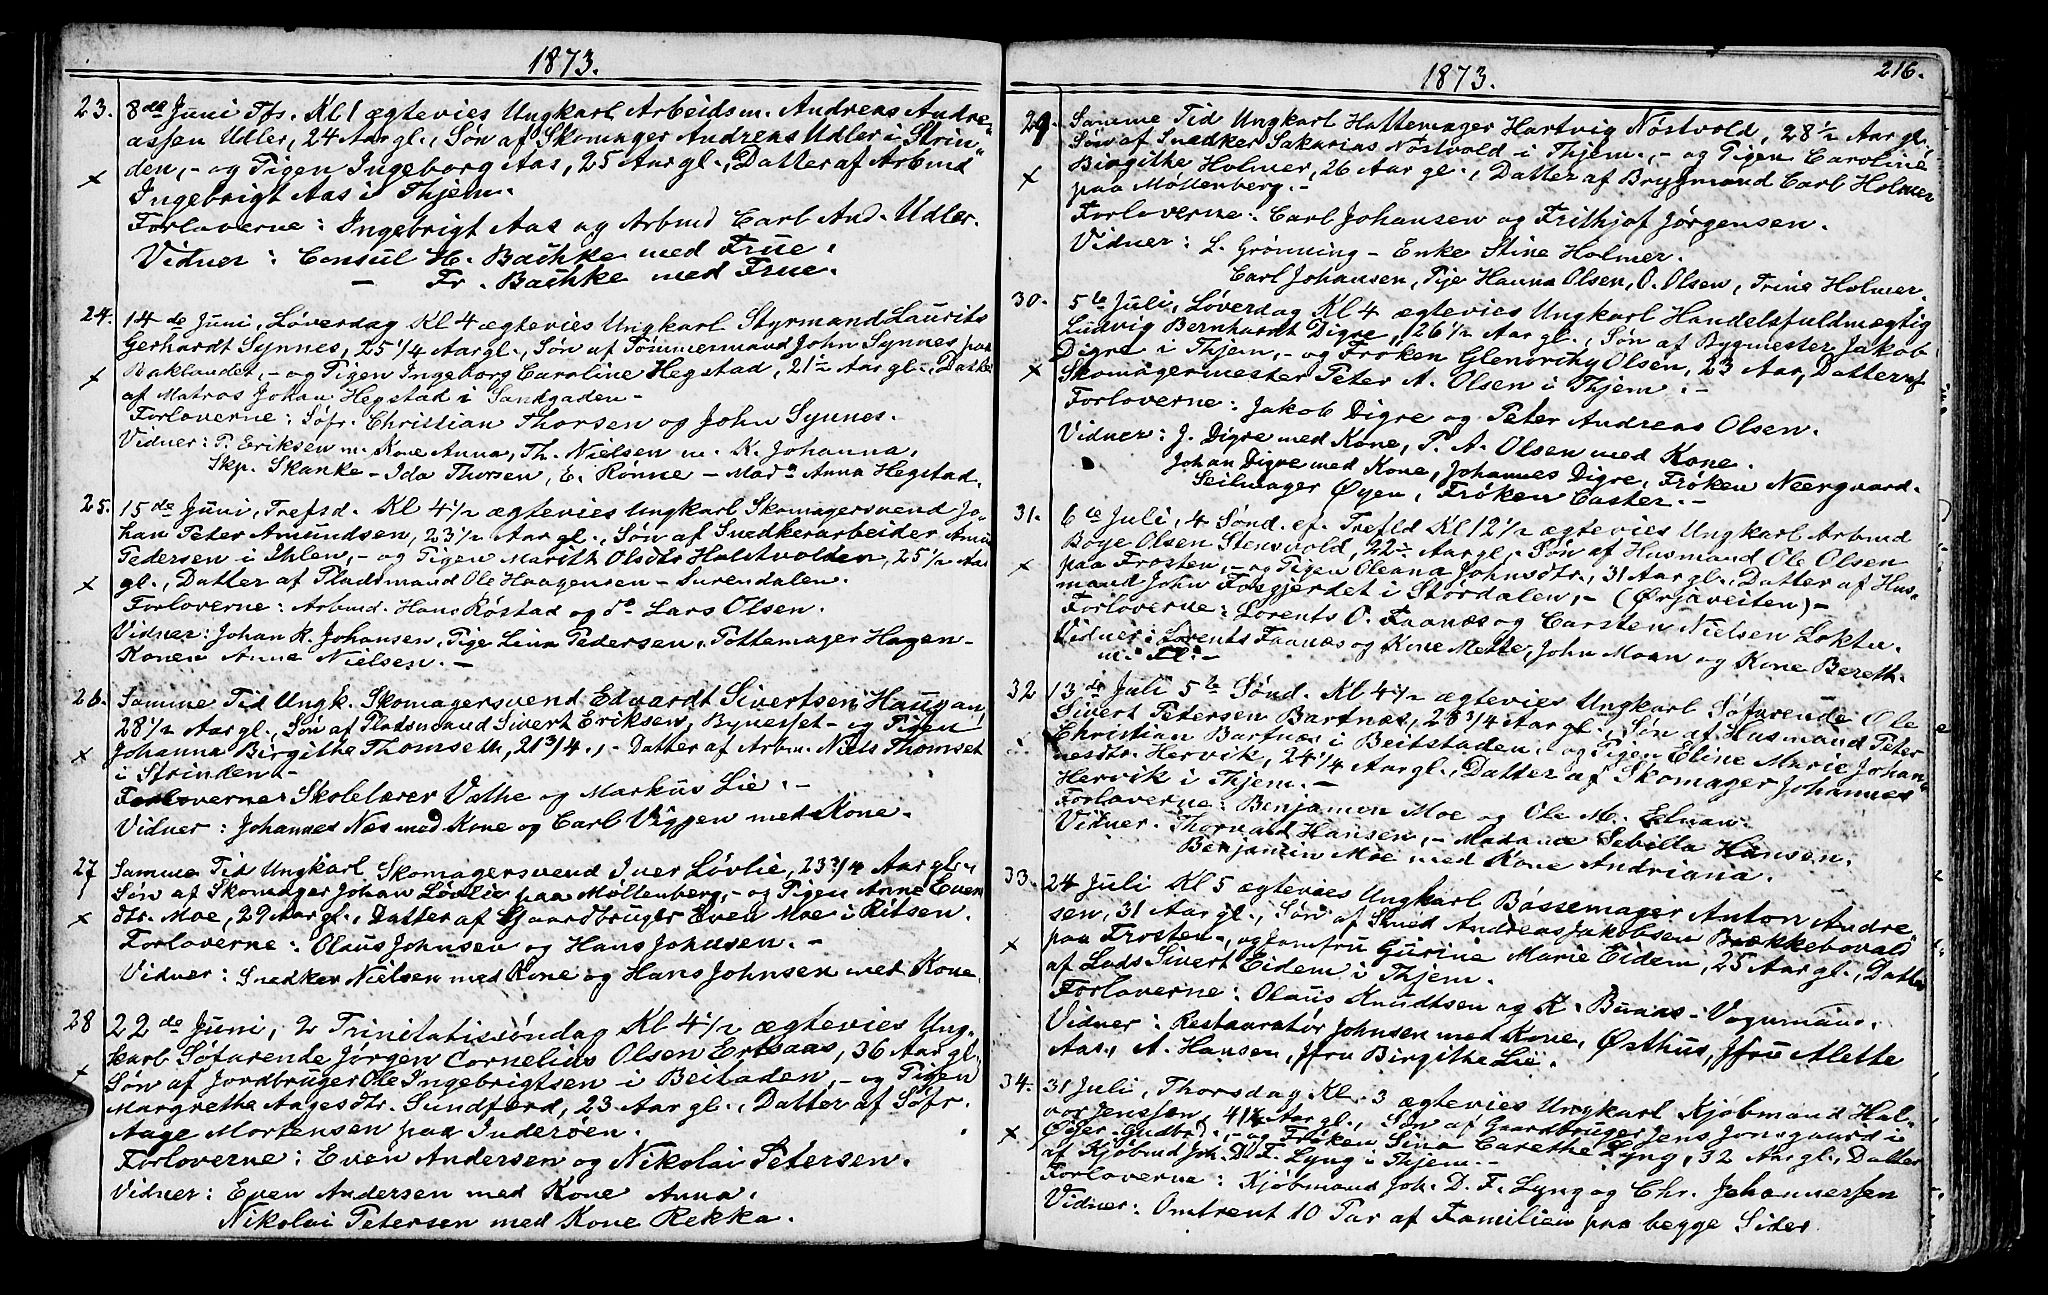 1873.
23. 8de Juni Tfs. Kl 1 ægtevies Ungkarl Arbeidsm. Andreas Andre"
assen Udler, 24 Aar gl., Søn af Skomager Andreas Udler i Strin"
den, - og Pigen Ingeborg Aas, 25 Aar gl., Datter af Arbmd
x Ingebrigt Aas i Thjem.
Forloverne: Ingebrigt Aas og Arbmd Carl And. Udler.
Vidner: Consul H. Bachke med Frue.
— Fr. Bachke med Frue.
24. 14de Juni, Løverdag Kl 4 ægtevies Ungkarl Styrmand Laurits
Gerhardt Synnes, 25 1/4 Aar gl., Søn af Tømmermand John Synnes paa
x Baklandet, - og Pigen Ingeborg Caroline Hegstad, 21 1/2 Aar gl., Datter
af Matros Johan Hegstad i Sandgaden -
Forloverne: Søfr. Christian Thorsen og John Synnes.
Vidner: P. Eriksen m. Kone Anna, Th. Nielsen m. K. Johanna,
Skp. Skanke - Ida Thorsen, E. Rønne - Mad. Anna Hegstad.
25. 15de Juni, Trefsd. Kl 4 1/2 ægtevies Ungkarl Skomagersvend Jo"
han Peter Amundsen, 23 1/2 Aar gl., Søn af Snedkerarbeider Amun
Pedersen i Ihlen, - og Pigen Marith Olsdtr Halstvolden, 25 1/2 Aar
x gl., Datter af Pladsmand Ole Haagensen - Surendalen.
Forloverne: Arbmd. Hans Røstad og do Lars Olsen.
Vidner: Johan K. Johansen, Pige Lina Pedersen, Pottemager Hagen -
Konen Anne Nielsen. -
26. Samme Tid Ungk. Skomagersvend Edvardt Sivertsen Haugan,
28 1/2 Aar gl., Søn af Pladsmand Sivert Eriksen, Bynesset - og Pigen
x Johanna Birgithe Thomsen, 21 3/4., - Datter af Arbm. Niels Thomsen
i Strinden -
Forloverne Skolelærer Vathe og Markus Lie. -
Vidner: Johannes Næs med Kone og Carl Viggen med Kone.
27 Samme Tid Ungkarl Skomagersvend Iver Løvlie, 23 3/4 Aar gl.
Søn af Skomager Johan Løvlie paa Møllenberg, - og Pigen Anne Even
x dtr. Moe, 29 Aar gl., Datter af Gaardbruger Even Moe i Ritsen.
Forloverne: Olaus Johnsen og Hans Johnsen. -
Vidner: Snedker Nielsen med Kone og Hans Johnsen med Kone
28 22de Juni, 2 Trinitatissøndag Kl 4 1/2 ægtevies Ung-
karl Søfarende Jørgen Cornelius Olsen Ertsaas, 36 Aar gl.
x Søn af Jordbruger Ole Ingebrigtsen i Beitaden, - og Pigen
Margrethe Aagesdtr. Sundfærd, 23 Aar gl., Datter af Søfr.
Aage Mortensen paa Inderøen.
Forloverne: Even Andersen og Nikolai Petersen.
Vidner: Even Andersen med Kone Anna.
Nikolai Petersen med Kone Rekka.
1873. 216.
29. Samme Tid Ungkarl Hattemager Hartvig Nøstvold, 28 1/2 Aar gl.
Søn af Snedker Sakarias Nøstvold i Thjem., - og Pigen Caroline
x Birgithe Holmer, 26 Aar gl., Datter af Brygmand Carl Holmer
paa Møllenberg. -
Forloverne: Carl Johansen og Frithjof Jørgensen.
Vidner: L. Grønning - Enke Stine Holmer.
Carl Johansen, Pije Hanna Olsen, O. Olsen, Trine Holmer.
30. 5te Juli, Løverdag Kl 4 ægtevies Ungkarl Handelsfuldmægtig
Ludvig Bernhardt Digre, 26 1/2 Aar gl., Søn af Bygmester Jakob
Digre i Thjem, - og Frøken Glenorthy Olsen, 23 Aar, Datter af
x Skomagermester Peter A. Olsen i Thjem: -
Forloverne: Jakob Digre og Peter Andreas Olsen.
Vidner: J. Digre med Kone, P. A. Olsen med Kone.
Johan Digre med Kone, Johannes Digre, Frøken Neergaard.
Seilmager Øyen, Frøken Caster. -
31. 6te Juli, 4 Sønd. ef. Trefld Kl 12 1/2 ægtevies Ungkarl Arbmd
Boye Olsen Stensvold, 22 Aar gl., Søn af Husmand Ole Olsen
x paa Frosten, - og Pigen Oleana Johnsdtr., 31 Aar gl., Datter af Hus"
mand John Forgjerdet i Stördalen, - (Ørjaveiten) -
Forloverne: Lorents O. Faanæs og Carsten Nielsen Loktu.
Vidner: Lorents Faanæs og Kone Mette, John Moan og Kone Bereth.
m. Fl. -
32 13de Juli 5te Sønd. Kl 4 1/2 ægtevies Ungkarl Søfarende Ole
Sivert Petersen Bartnæs, 28 3/4 Aar gl., Søn af Husmand Peter
Christian Bartnæs i Beitstaden, - og Pigen Eline Marie Johan"
nesdtr. Hervik, 24 1/4 Aar gl., Datter af Skomager Johannes
Hervik i Thjem. -
Forloverne: Benjamen Moe og Ole M. Edvan.
Vidner. Thorvald Hansen, - Madame Sebilla Hansen.
Benjamin Moe med Kone Andriana.
33. 24 Juli Kl 5 ægtevies Ungkarl Bøssemager Anton Andre"
sen, 31 Aar gl., Søn af Smed Andreas Jakobsen Brækkebovald
x paa Frosten, og Jomfru Gurine Marie Eidem, 25 Aar gl., Datter
af Lods Sivert Eidem i Thjem.
Forloverne: Olaus Knudtsen og K. Buaas - Vognmand.
Vidner: Restauratør Johnsen med Kone, Østhus, Jfru Alette
Aas, A. Hansen, Jfru Birgithe Lie.
34. 31 Juli, Thorsdag Kl. 3 ægtevies Ungkarl Kjøbmand Hal-
vor Jenssen, 41 1/4 Aar gl., Søn af Gaardbruger Jens Jonsgaard i
x Øyer-Gudbrd., - og Frøken Sina Carethe Lyng, 32 Aar gl., Datter
af Kjøbmd Joh. D. F. Lyng i Thjem. -
Forloverne: Kjøbmand Joh. D. F. Lyng og Chr. Johannessen
Vidner: Omtrent 10 Par af Familien paa begge Sider.